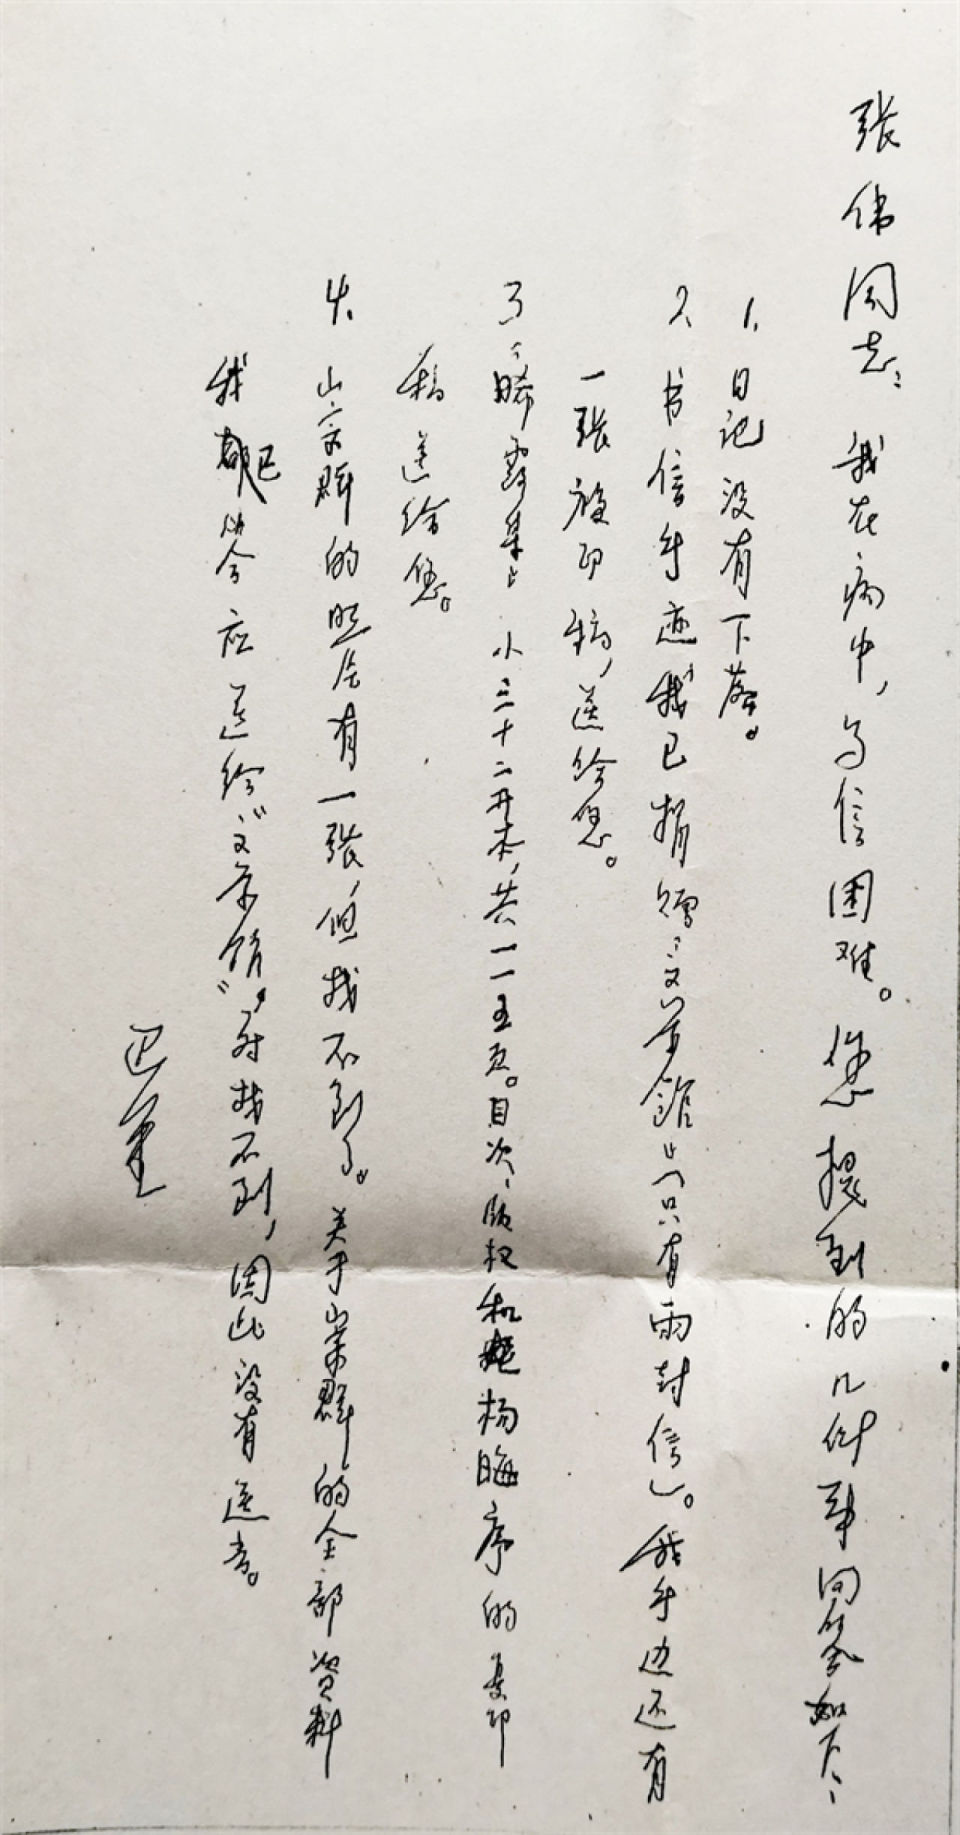 张伟同志：我在病中，写信困难。您提到的几件事回答如下：
1、日记没有下落。
2、书信手迹我已捐赠“文学馆”（只有两封信）。我手边还有
一张复印稿，送给您。
3、“晞露集”小三十二开本，共一一五页。目次、版权和杨晦序的复印
稿送给您。
4、山宗群的照片有一张，但找不到了。关于山宗群的全部资料
我都已 应送给“文学馆”，因找不到，因此没有送去。
巴金